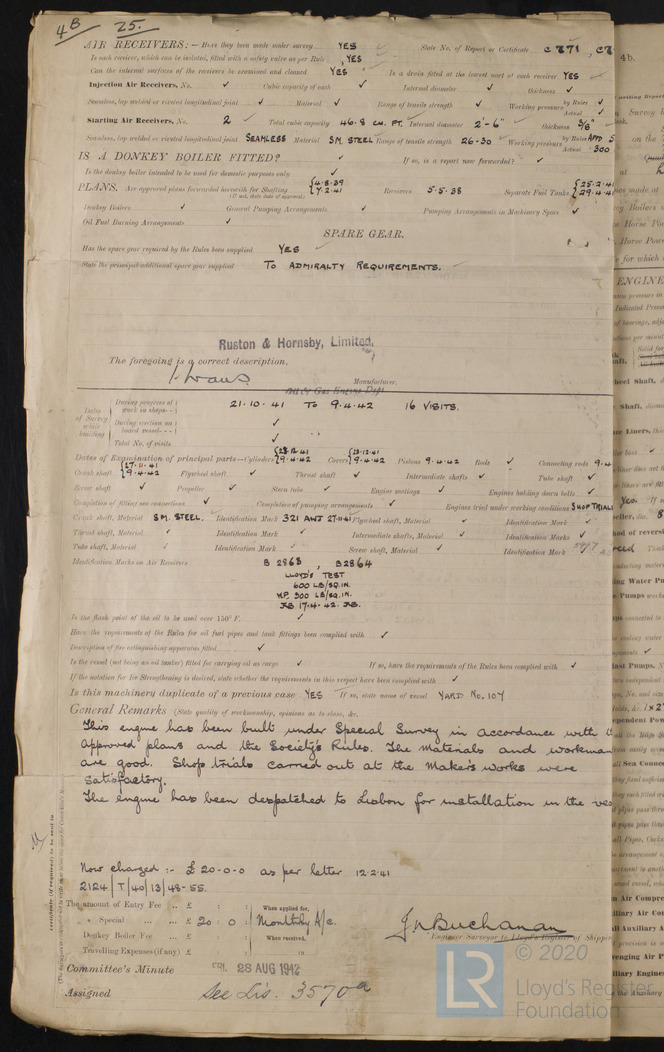 4B 25.
AIR RECEIVERS:— Have they been made under survey YES State No. of Report or Certificate C 771, C7
Is each receiver, which can be isolated, fitted with a safety valve as per Rule YES
Can the internal surfaces of the receivers be examined and cleaned YES Is a drain fitted at the lowest part of each receiver YES
Injection Air Receivers, No. ✓ Cubic capacity of each ✓ Internal diameter ✓ thickness ✓
Seamless, lap welded or riveted longitudinal joint ✓ Material ✓ Range of tensile strength ✓ Working pressure by Rules ✓ Actual ✓
Starting Air Receivers, No. 2 Total cubic capacity 46.8 CU. FT. Internal diameter 2'-6" thickness 5/8"
Seamless, lap welded or riveted longitudinal joint SEAMLESS Material SM. STEEL Range of tensile strength 26-30 Working pressure by Rules APPD Actual 300
IS A DONKEY BOILER FITTED? ✓ If so, is a report now forwarded? ✓
Is the donkey boiler intended to be used for domestic purposes only ✓
PLANS. Are approved plans forwarded herewith for Shafting 4.8.39 7.2.41 Receivers 5.5.38 Separate Fuel Tanks 25.2.41 29.4.41
(If not, state date of approval)
Donkey Boilers ✓ General Pumping Arrangements ✓ Pumping Arrangements in Machinery Space ✓
Oil Fuel Burning Arrangements ✓
SPARE GEAR.
Has the spare gear required by the Rules been supplied YES
State the principal additional spare gear supplied TO ADMIRALTY REQUIREMENTS.
Ruston & Hornsby, Limited,
The foregoing is a correct description,
Manufacturer.
Oil & Gas Engine Dept
Dates of Survey while building
During progress of work in shops-- 21.10.41 TO 9.4.42 16 VISITS.
During erection on board vessel--- ✓
Total No. of visits ✓
Dates of Examination of principal parts—Cylinders 23.12.41 9.4.42 Covers 23.12.41 9.4.42 Pistons 9.4.42 Rods ✓ Connecting rods 9.4
Crank shaft 27.11.41 9.4.42 Flywheel shaft ✓ Thrust shaft ✓ Intermediate shafts ✓ Tube shaft ✓
Screw shaft ✓ Propeller ✓ Stern tube ✓ Engine seatings ✓ Engines holding down bolts ✓
Completion of fitting sea connections ✓ Completion of pumping arrangements ✓ Engines tried under working conditions SHOP TRIALS
Crank shaft, Material SM. STEEL. Identification Mark 321 AWJ 27.11.41 Flywheel shaft, Material ✓ Identification Mark ✓
Thrust shaft, Material ✓ Identification Mark ✓ Intermediate shafts, Material ✓ Identification Marks ✓
Tube shaft, Material ✓ Identification Mark ✓ Screw shaft, Material ✓ Identification Mark
Identification Marks on Air Receivers B 2863, B2864
LLOYD'S TEST
600 LB/SQ.IN.
W.P. 300 LB/SQ.IN.
J.B. 17.4.42. J.B.
Is the flash point of the oil to be used over 150° F. ✓
Have the requirements of the Rules for oil fuel pipes and tank fittings been complied with ✓
Description of fire extinguishing apparatus fitted ✓
Is the vessel (not being an oil tanker) fitted for carrying oil as cargo ✓ If so, have the requirements of the Rules been complied with ✓
If the notation for Ice Strengthening is desired, state whether the requirements in this respect have been complied with ✓
Is this machinery duplicate of a previous case YES If so, state name of vessel YARD No. 107
General Remarks (State quality of workmanship, opinions as to class, &c.
This engine has been built under Special Survey in accordance with
approved plans and the Society's Rules. The materials and workman
are good. Shop trials carried out at the Makers works were
satisfactory.
The engine has been despatched to Lisbon for installation in the
Now charged :- £ 20-0-0 as per letter 12-2-41
2124/T/40/13/48-55.
The amount of Entry Fee ... £ : : When applied for,
" Special ... £ 20 : 0 : Monthly A/c.
Donkey Boiler Fee ... £ : : When received,
Travelling Expenses (if any) £ : :
J. W. Buchanan
Engineer Surveyor to Lloyd's Register of Shipping
Committee's Minute FRI. 28 AUG 1942
Assigned See Lis. 3570a
© 2020
LR
Lloyd's Register
Foundation